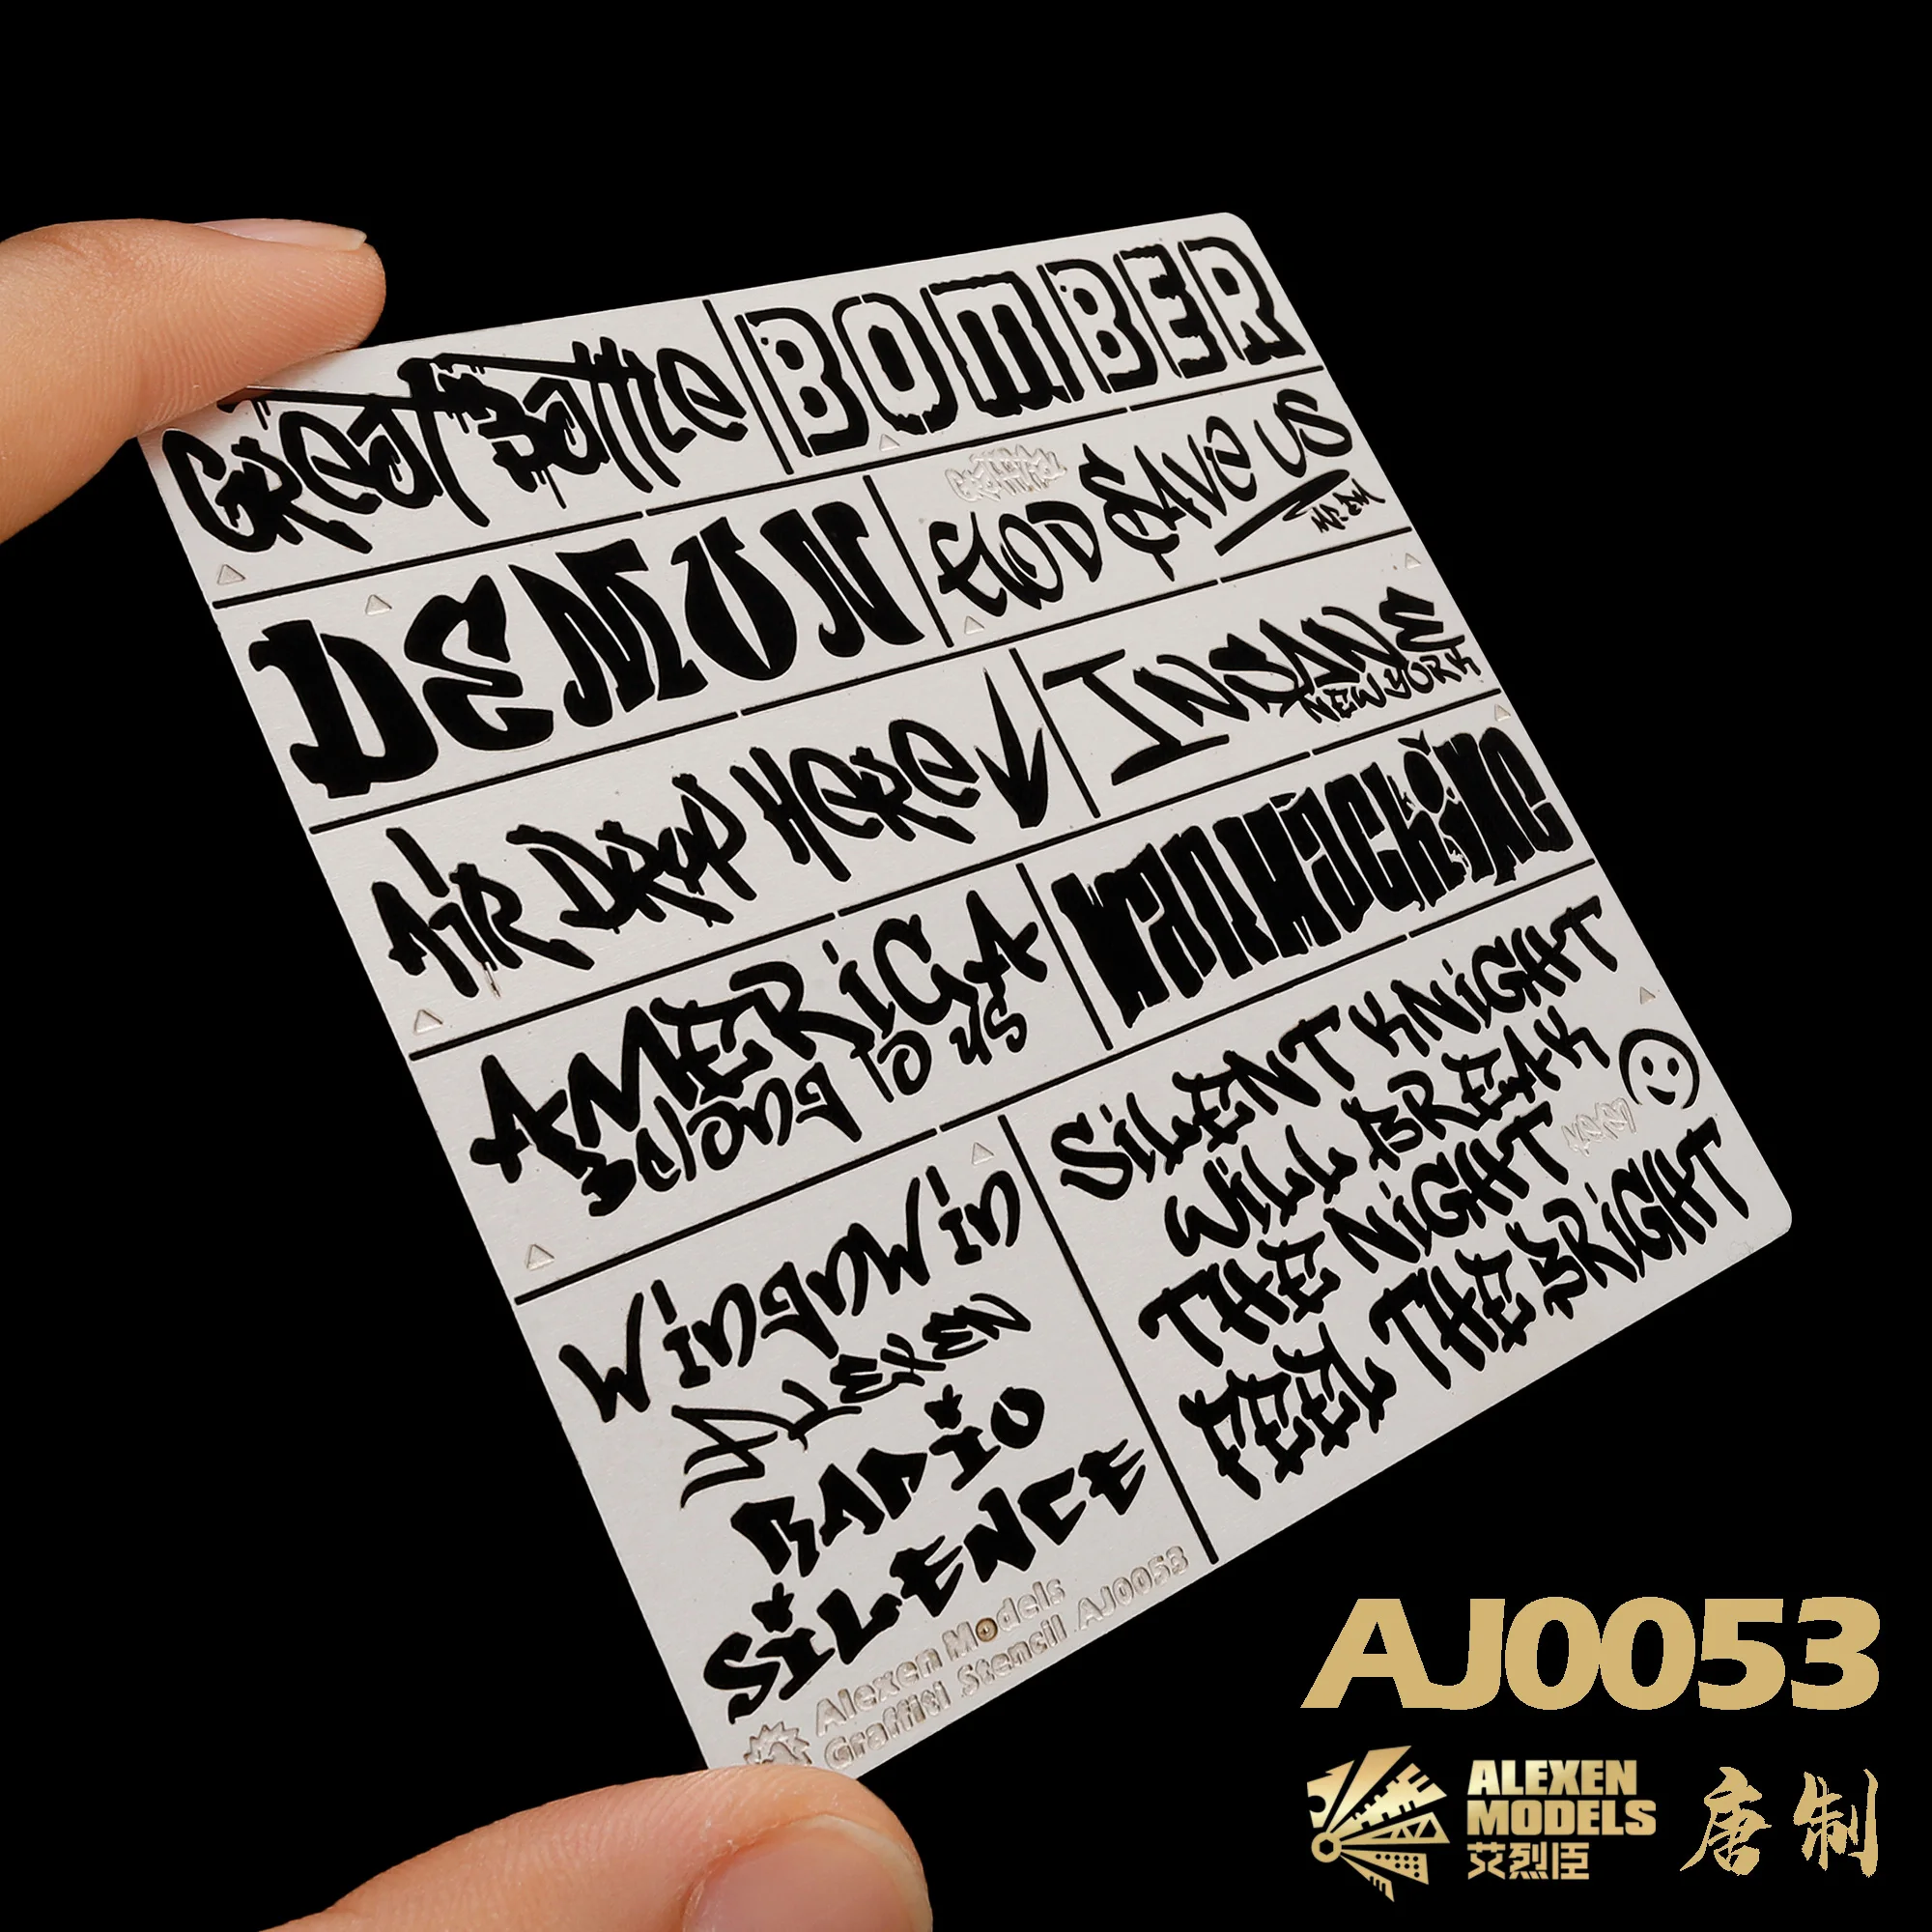 Great Battle
BOMBER
Graffiti
DEMUN
GOD SAVE US
MR.EM
AiR DROP HeRe
INSANE
NEW YORK
AMERiCA
Belong TO US
WARMachine
SiLENT KNiGHT
WiLL BREAK
THE NiGHT
FEEL THE BRiGHT
Wingnwin
ALEXEN
RADiO
SiLENCE
Alexen Models
Graffiti Stencil AJ0053
AJ0053
ALEXEN
MODELS
艾烈臣
唐制